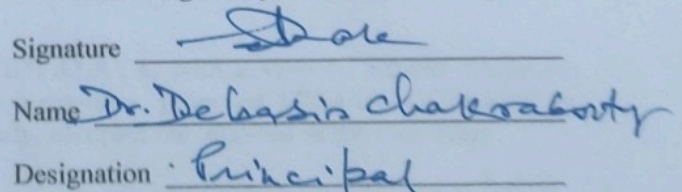 Signature
Name Dr. Debasis Chakraborty
Designation Principal